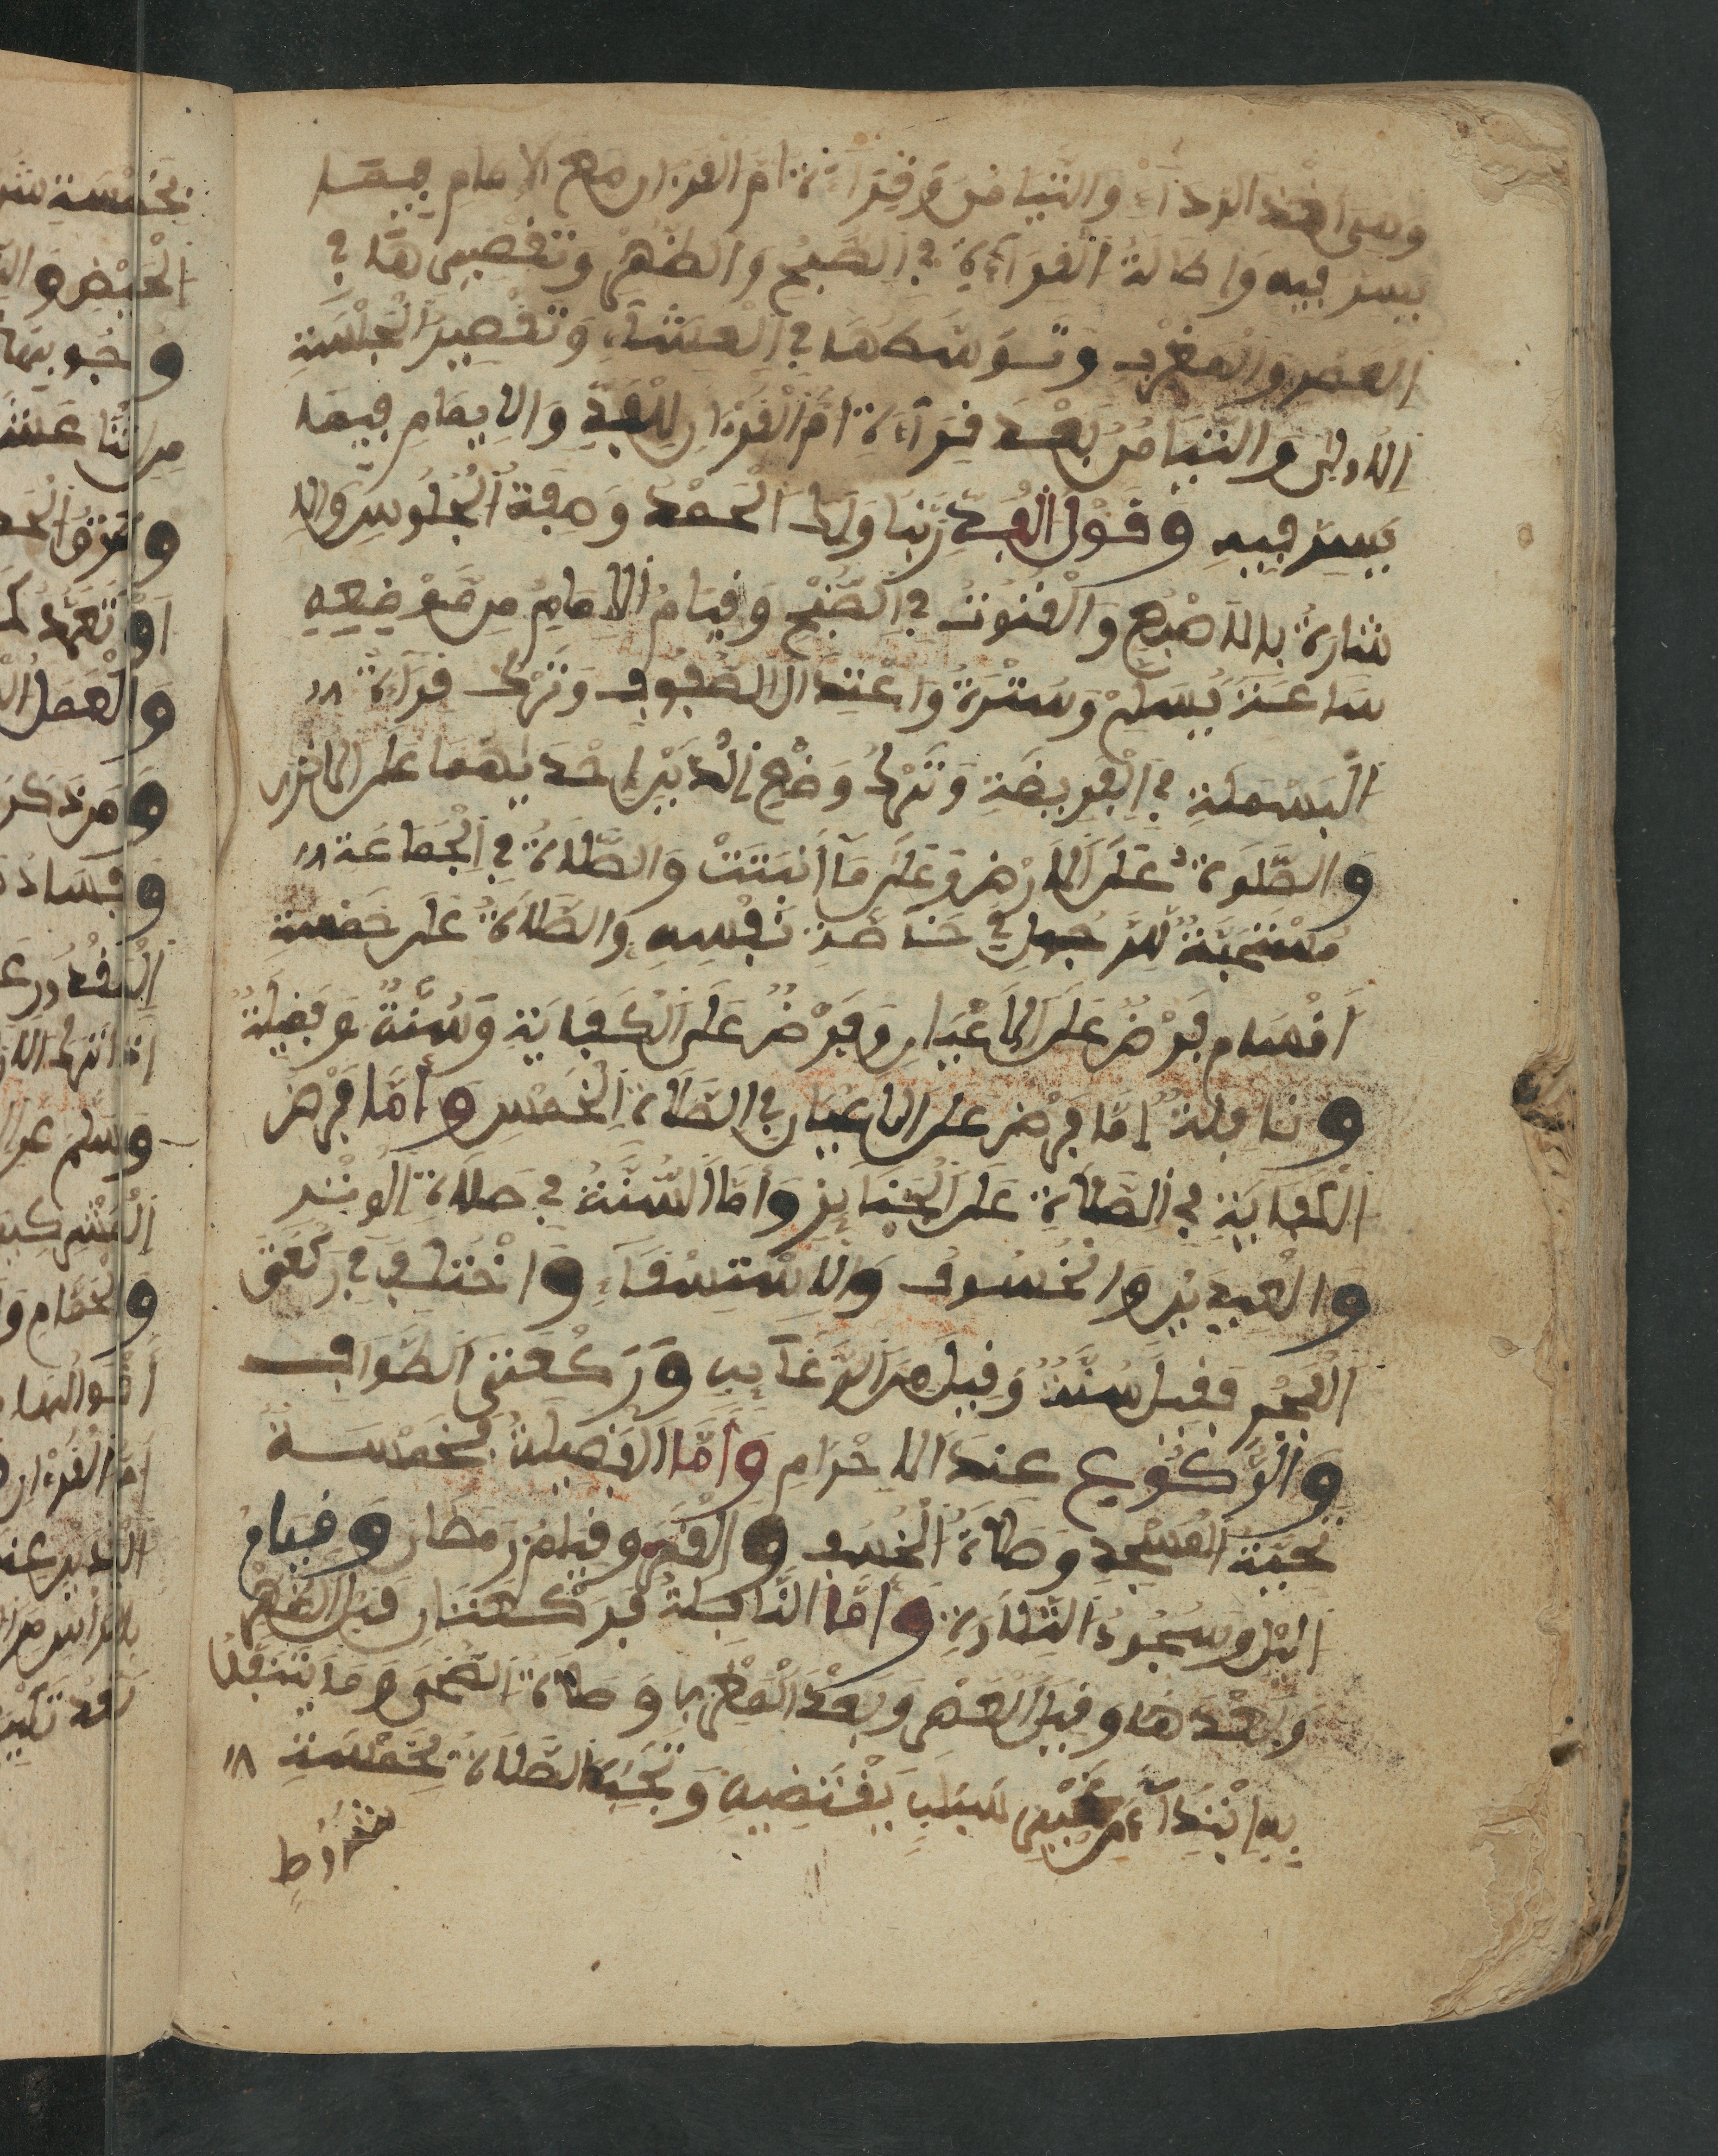 وهي اخذ الرداء والتيامن وقراءة ام القرءان مع الامام فيما
يسر فيه واطالة القراءة في الصبح والظهر وتقصيرها في
العصر والمغرب وتوسطها في العشاء وتقصير الجلسة
الاولى والتيامن بعد قراءة ام القرءان للفذ والامام فيما
يسر فيه وقول الفذ ربنا ولك الحمد وصفة الجلوس والا
شارة بالاصبع والقنوت في الصبح وقيام الامام من موضعه
ساعة يسلم وسترة واعتدال الصفوف وترك قراءة
البسملة في الفريضة وترك وضع اليدين احديهما على الاخرى
والصلوة على الارض وعلى ما أنبتت والصلاة في الجماعة
مستحبة للرجل في خاصة نفسه والصلاة على خمسة
أقسام فرض على الاعيان وفرض على الكفاية وسنة وفضيلة
ونافلة إما فرض على الاعيان في الصلاة الخمس وأما فرض
الكفاية في الصلاة على الجنايز وأما السنة في صلاة الوتر
والعيدين والخسوف والاستسقاء واختلف في ركعتي
الفجر فقيل سنة وقيل من الرغايب وركعتي الطواف
والركوع عند الاحرام وأما الفضيلة فخمسة
تحية المسجد وصلاة الخسف والقمر وقيام رمضان وقيام
اليل وسجود التلاوة وأما النافلة فركعتان قبل الظهر
وبعدها وقبل العصر وبعد المغرب وصلاة الضحى وما يتنفل
به ابتداء من غير سبب يقتضيه وتجب الصلاة بخمسة
شروط